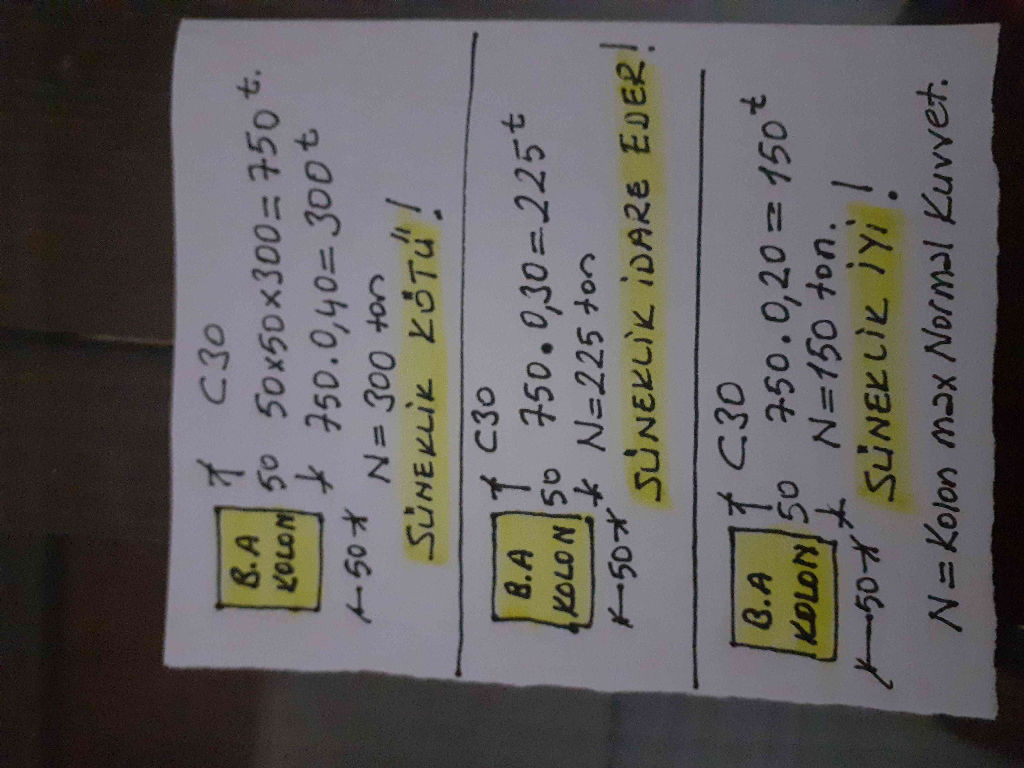 B.A
KOLON
50
50
C30
50x50x300=750 t.
750.0,40=300 t
N=300 ton
SÜNEKLİK KÖTÜ!
B.A
KOLON
50
50
C30
750.0,30=225 t
N=225 ton
SÜNEKLİK İDARE EDER!
B.A
KOLON
50
50
C30
750.0,20=150 t
N=150 ton.
SÜNEKLİK İYİ!
N=Kolon max Normal Kuvvet.